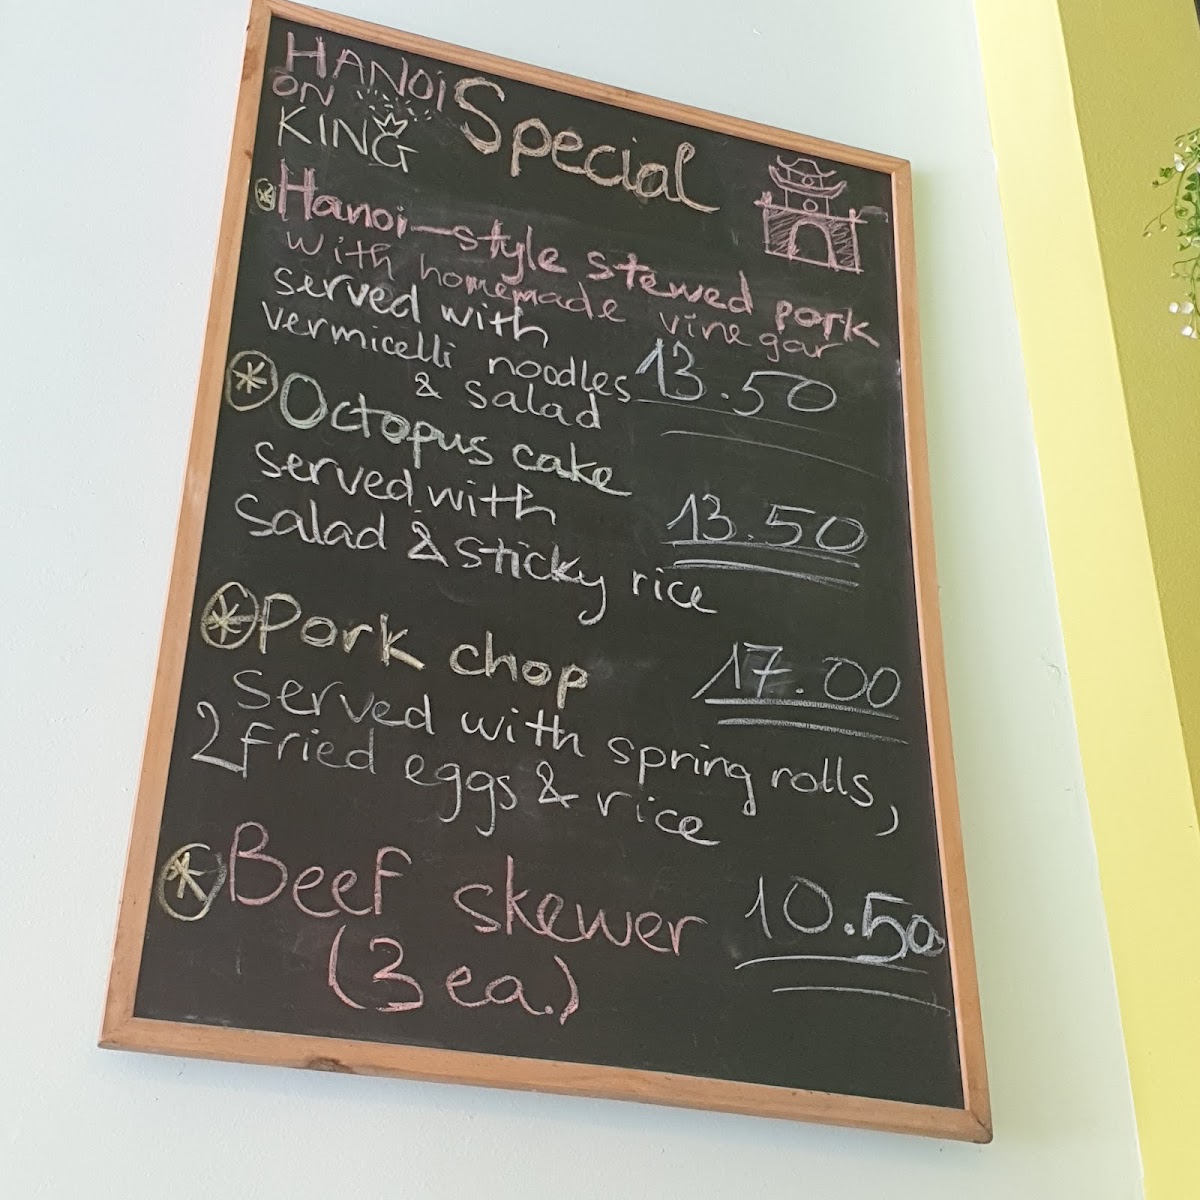 HANOi
ON
KING
Special
* Hanoi-style stewed pork
with homemade vinegar
served with
vermicelli noodles 13.50
& salad
* Octopus cake
served with 13.50
Salad & sticky rice
* Pork chop 17.00
served with spring rolls,
2 fried eggs & rice
* Beef skewer 10.50
(3 ea.)